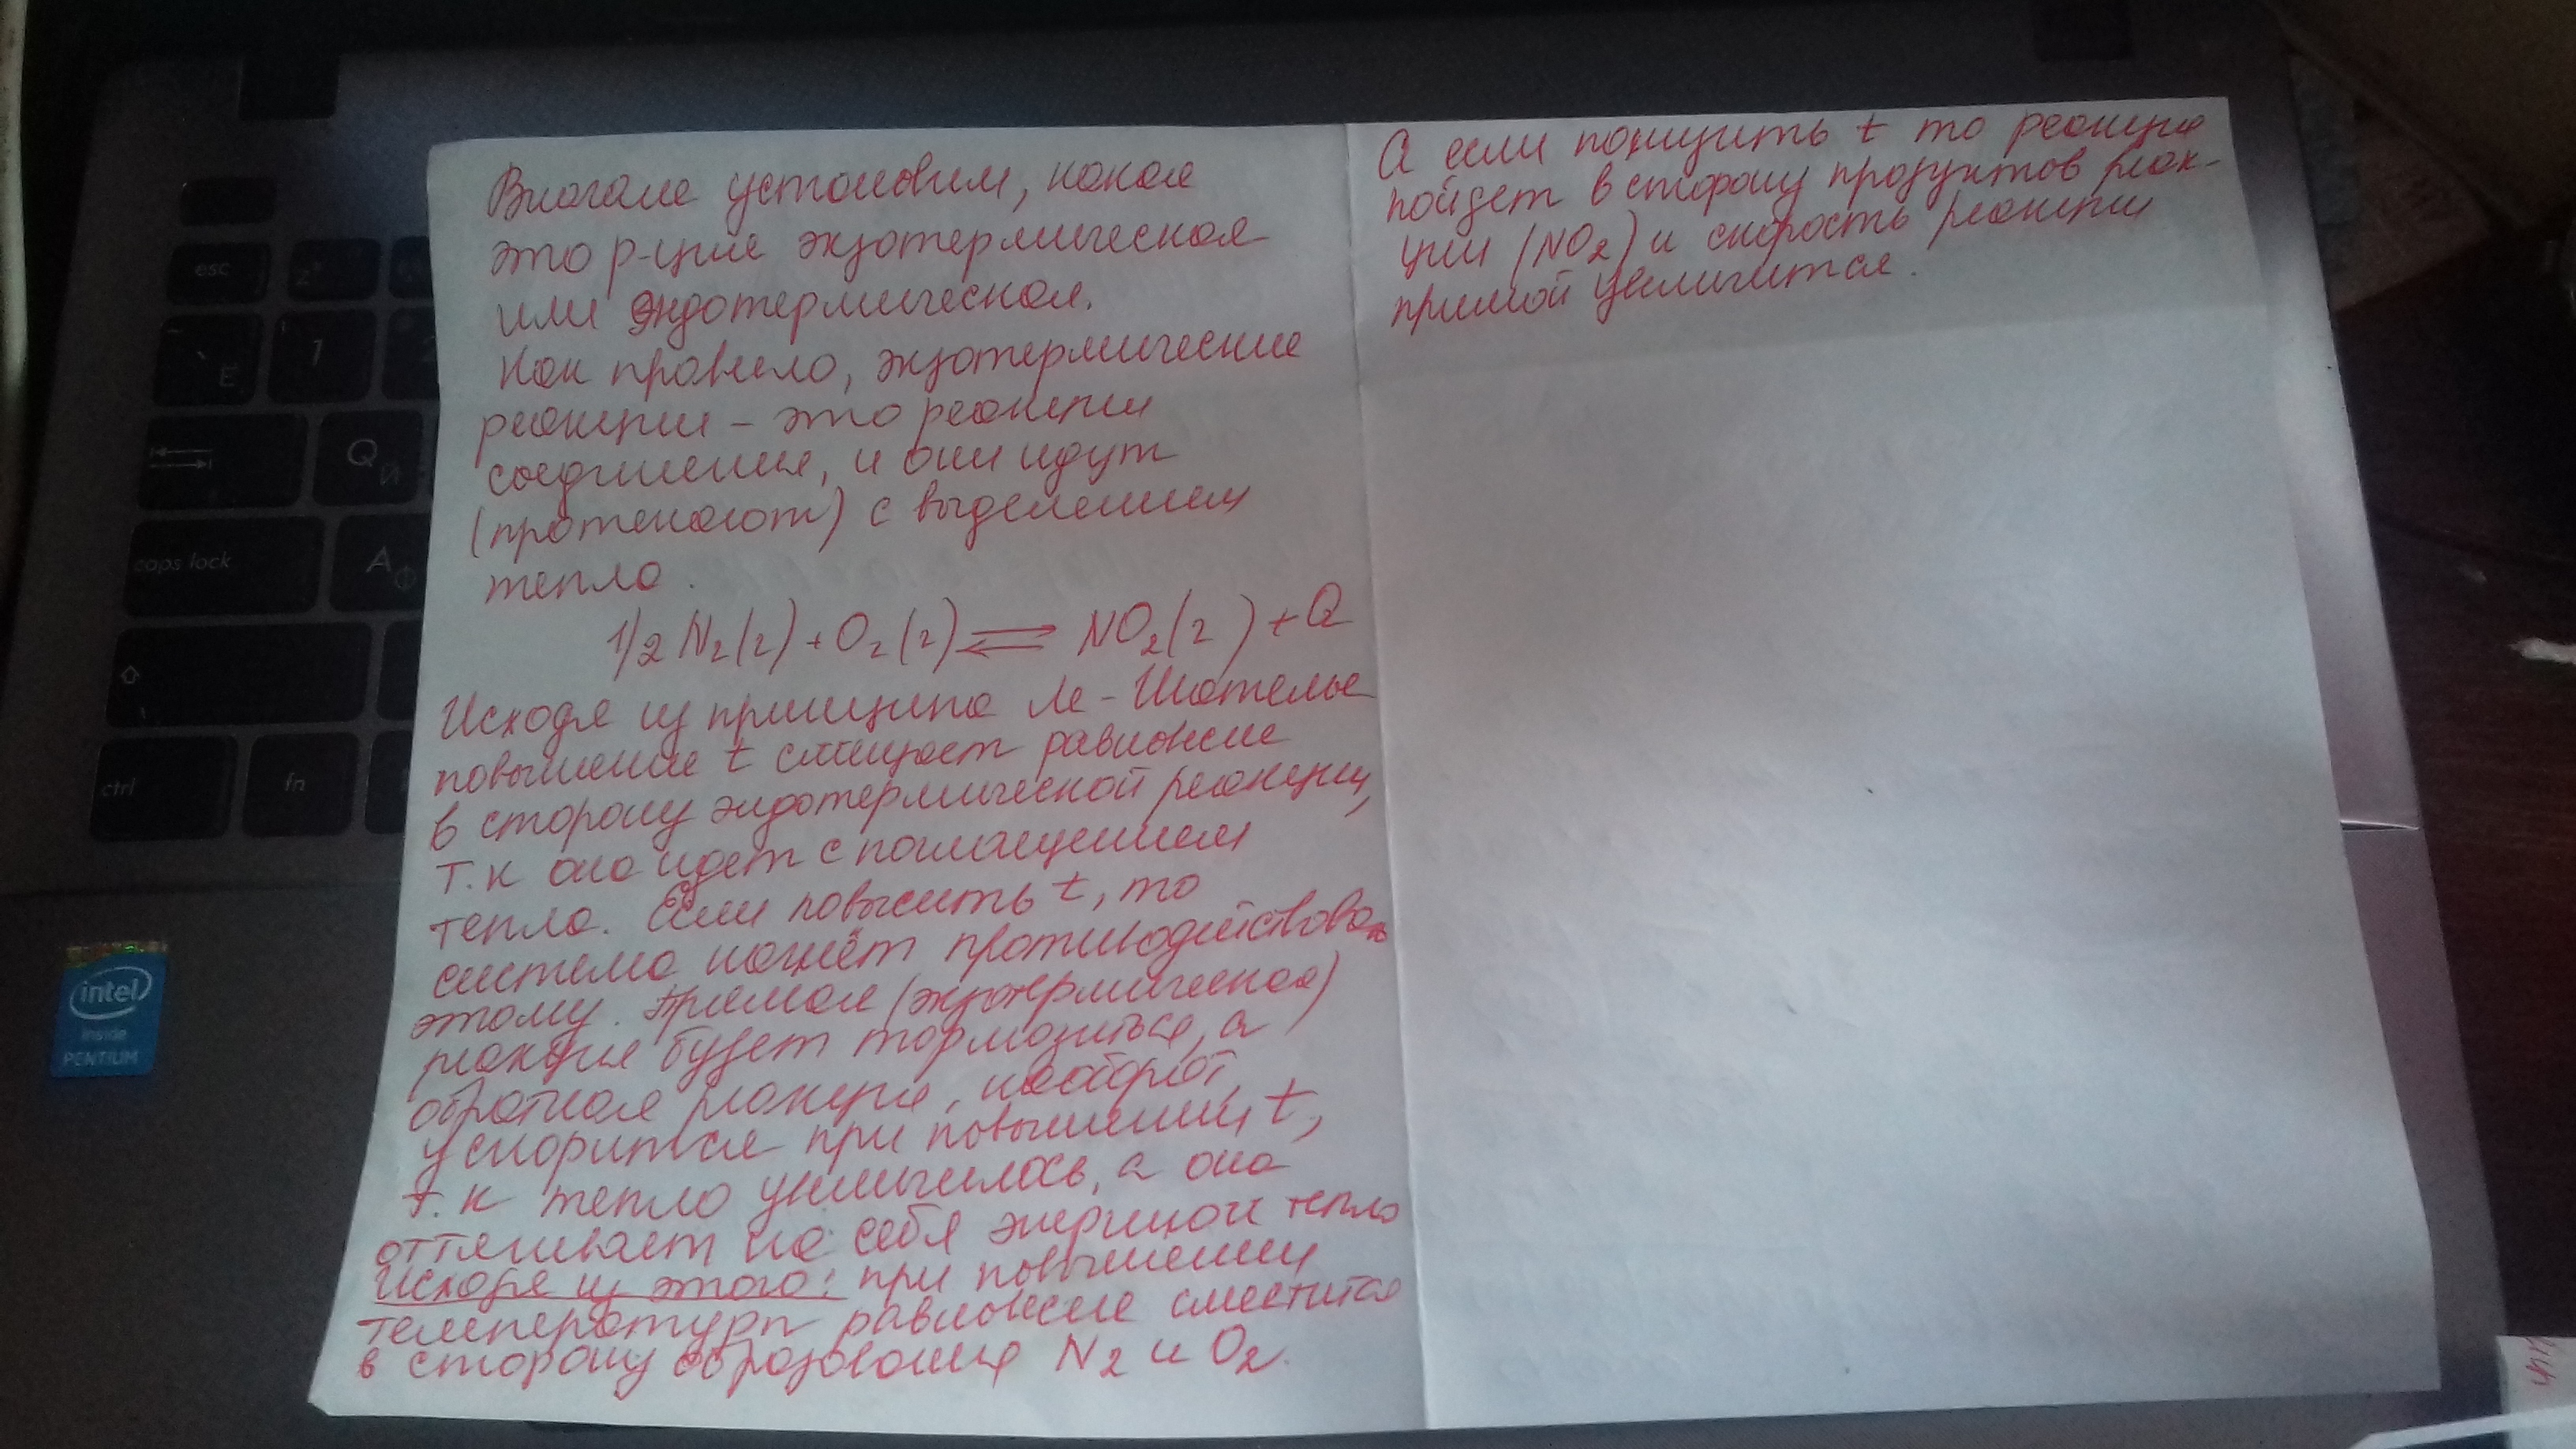 Вначале установим, какая
это р-ция экзотермическая
или эндотермическая.
Как правило, экзотермические
реакции – это реакции
соединения, и они идут
(протекают) с выделением
тепла.
1/2 N2(г) + O2(г) ⇌ NO2(г) + Q
Исходя из принципа Ле-Шателье
повышение t смещает равновесие
в сторону эндотермической реакции,
т.к она идет с поглащением
тепла. Если повысить t, то
система начнёт противодействовать
этому. Прямая (экзотермическая)
реакция будет тормозиться, а
обратная реакция, наоборот,
ускорится при повышении t,
т.к тепло увеличилось, а она
оттягивает на себя тепло
Исходя из этого: при повышении
температуры равновесие сместится
в сторону образования N2 и O2.
А если понизить t то реакция
пойдет в сторону продуктов реак-
ции (NO2) и скорость реакции
прямой увеличится.
esc
2
1
Ё
Q
Й
caps lock
A
Ф
ctrl
fn
intel
inside
PENTIUM